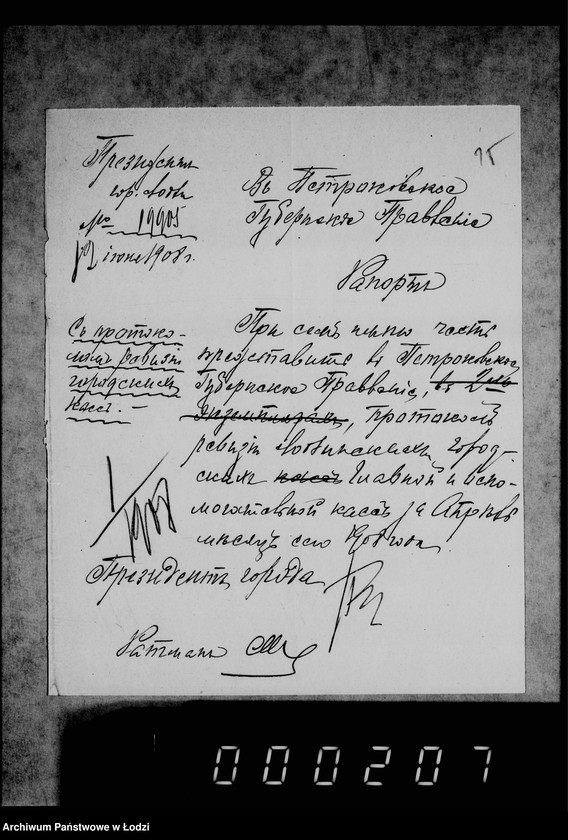 Президентъ
гор. Лодзи
№ 19905
12 іюня 1908 г.
15
Въ Петроковское
Губернское Правленіе
Рапортъ
Съ протоко-
ломъ ревизіи
городскихъ
кассъ. —
При семъ имѣю честь
представить въ Петроковское
Губернское Правленіе, въ 2-хъ
экземплярахъ, протоколъ
ревизіи Лодзинскихъ город-
скихъ кассъ Главной и вспо-
могательной кассъ за Апрѣль
мѣсяцъ сего 1908 года
Президентъ города
Ратманъ
000207
Archiwum Państwowe w Łodzi